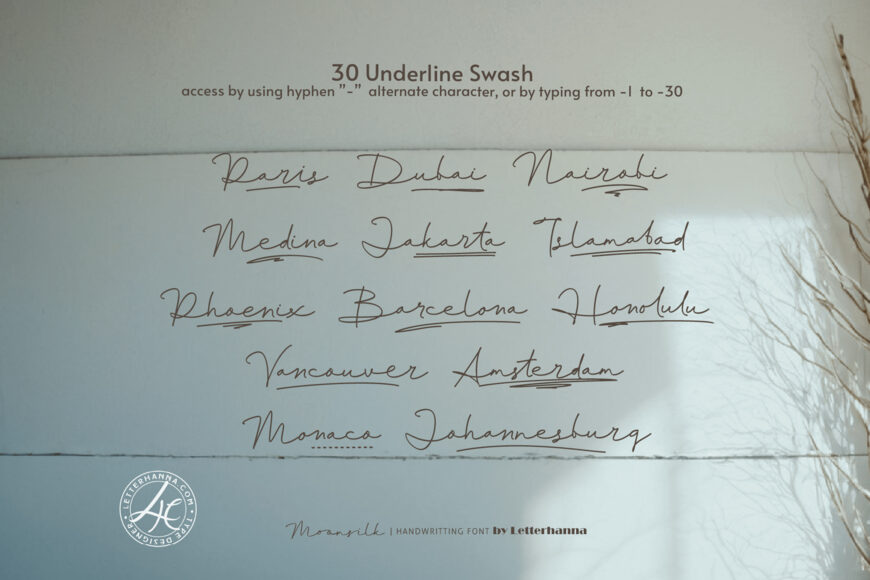 30 Underline Swash
access by using hyphen ”-” alternate character, or by typing from -1 to -30
Paris Dubai Nairobi
Medina Jakarta Islamabad
Phoenix Barcelona Honolulu
Vancouver Amsterdam
Monaco Johannesburg
LETTERHANNA.COM • TYPE DESIGNER •
LH
Moonsilk | HANDWRITTING FONT by Letterhanna